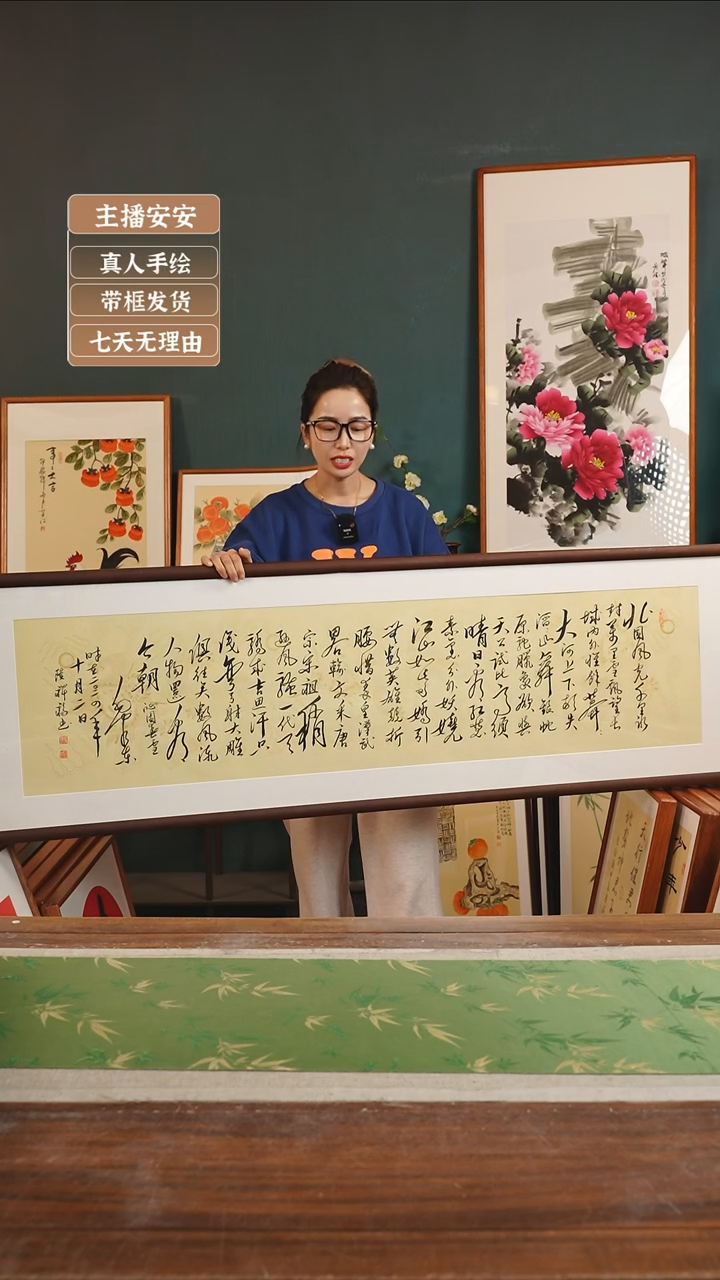 主播安安
真人手绘
带框发货
七天无理由
北国风光千里冰
封万里雪飘望长
城内外惟馀莽
大河上下顿失
滔山舞银蛇
原驰腊象欲与
天公试比高须
晴日看红装
素裹分外妖娆
江山如此多娇引
无数英雄竞折
腰惜秦皇汉武
略输文采唐
宗宋祖稍
逊风骚一代天
骄成吉思汗只
识弯弓射大雕
俱往矣数风流
人物还看
今朝 沁园春雪
毛泽东
十月二日
事事大吉